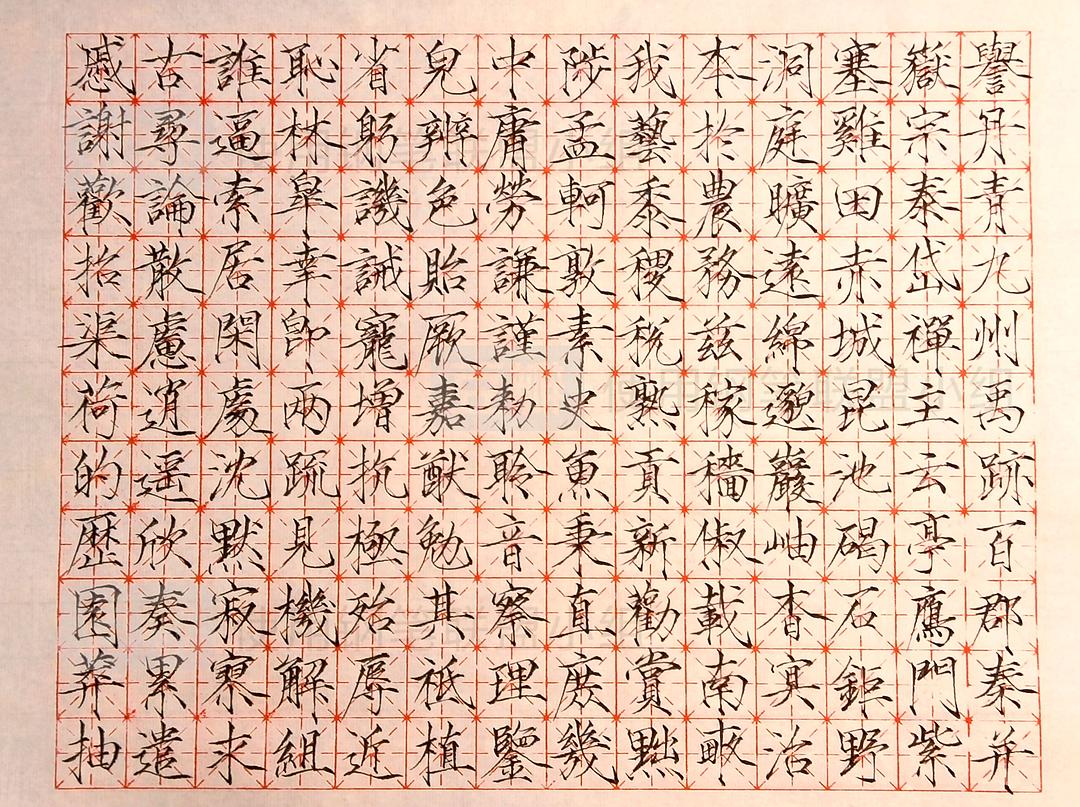 譽丹青九州禹跡百郡秦并
嶽宗泰岱禪主云亭鴈門紫
塞雞田赤城昆池碣石鉅野
洞庭曠遠綿邈巖岫杳冥治
本於農務茲稼穡俶載南畝
我藝黍稷稅熟貢新勸賞黜
陟孟軻敦素史魚秉直庶幾
中庸勞謙謹敕聆音察理鑒
皃辨色貽厥嘉猷勉其祗植
省躬譏誡寵增抗極殆辱近
恥林皋幸即兩疏見機解組
誰逼索居閑處沈默寂寥求
古尋論散慮逍遙欣奏累遣
慼謝歡招渠荷的歷園莽抽